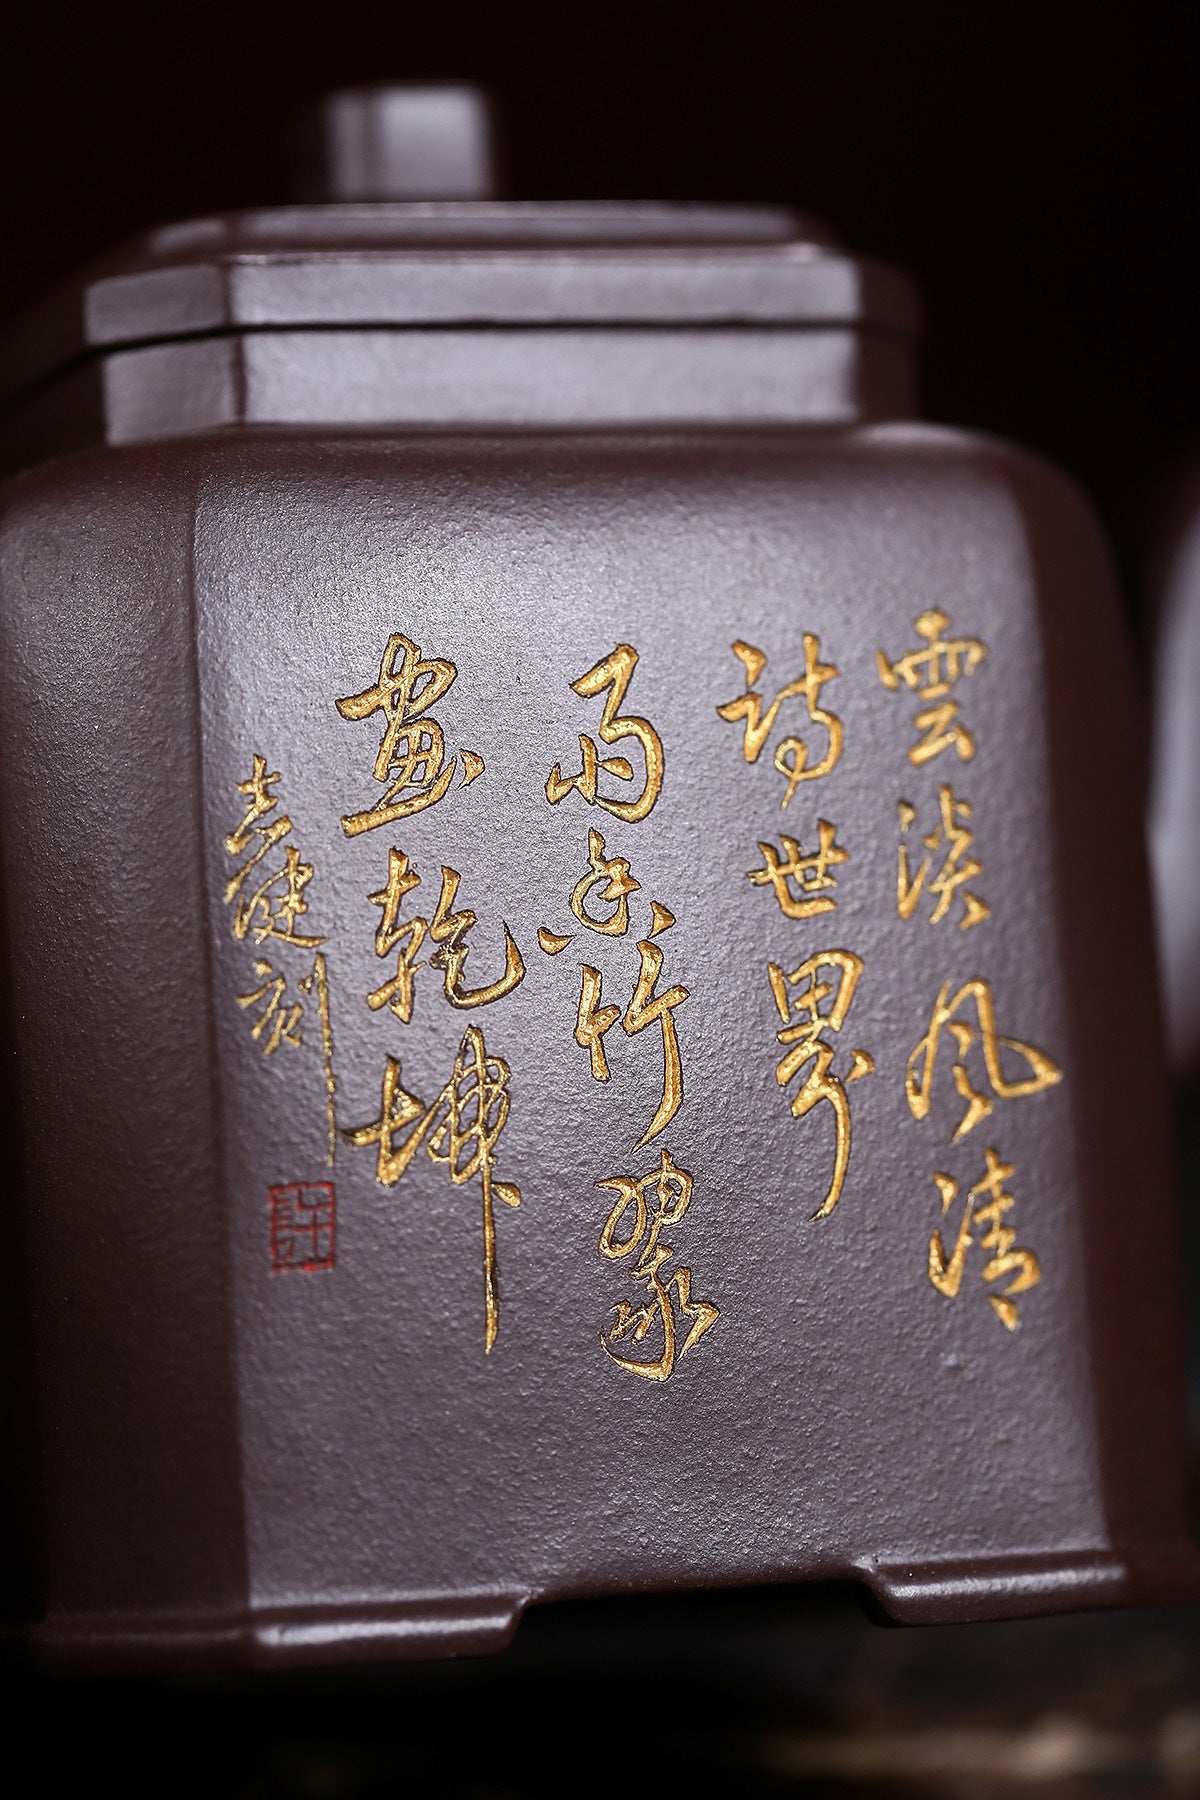 雲淡風清
詩世界
雨竹
畫乾坤
健刻